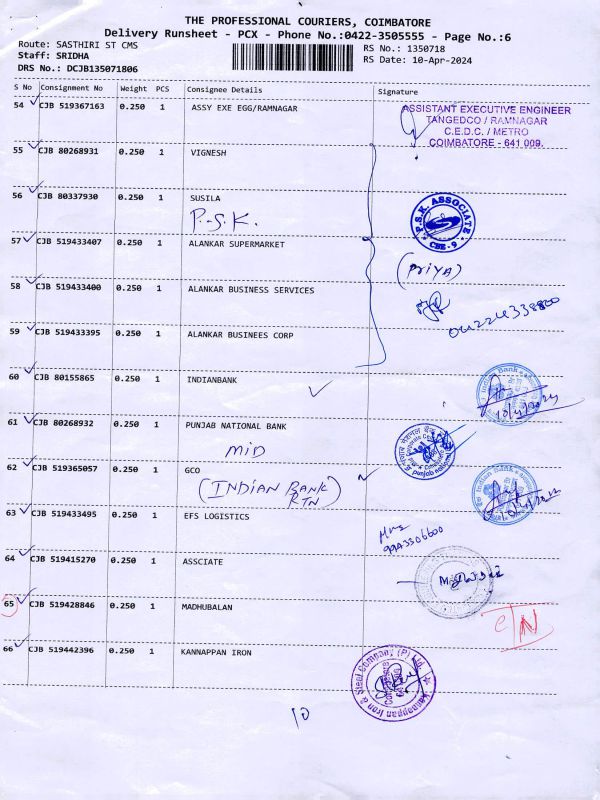 THE PROFESSIONAL COURIERS, COIMBATORE
Delivery Runsheet - PCX - Phone No.:0422-3505555 - Page No.:6
Route: SASTHIRI ST CMS
RS No.: 1350718
Staff: SRIDHA
RS Date: 10-Apr-2024
DRS No.: DCJB135071806
S No Consignment No Weight PCS Consignee Details Signature
54 CJB 519367163 0.250 1 ASSY EXE EGG/RAMNAGAR
ASSISTANT EXECUTIVE ENGINEER
TANGEDCO / RAMNAGAR
C.E.D.C. / METRO
COIMBATORE - 641 009.
55 CJB 80268931 0.250 1 VIGNESH
56 CJB 80337930 0.250 1 SUSILA
P.S.K.
P.S.K. ASSOCIATE
CBE-9
57 CJB 519433407 0.250 1 ALANKAR SUPERMARKET
(PRIYA)
58 CJB 519433400 0.250 1 ALANKAR BUSINESS SERVICES
59 CJB 519433395 0.250 1 ALANKAR BUSINEES CORP
60 CJB 80155865 0.250 1 INDIANBANK
Indian Bank
10/4/2024
61 CJB 80268932 0.250 1 PUNJAB NATIONAL BANK
MID
punjab national
62 CJB 519365057 0.250 1 GCO
(INDIAN BANK)
RTN
Indian Bank
63 CJB 519433495 0.250 1 EFS LOGISTICS
64 CJB 519415270 0.250 1 ASSCIATE
65 CJB 519428846 0.250 1 MADHUBALAN
C/N
66 CJB 519442396 0.250 1 KANNAPPAN IRON
Kannappan Iron & Steel Company (P) Ltd.
10